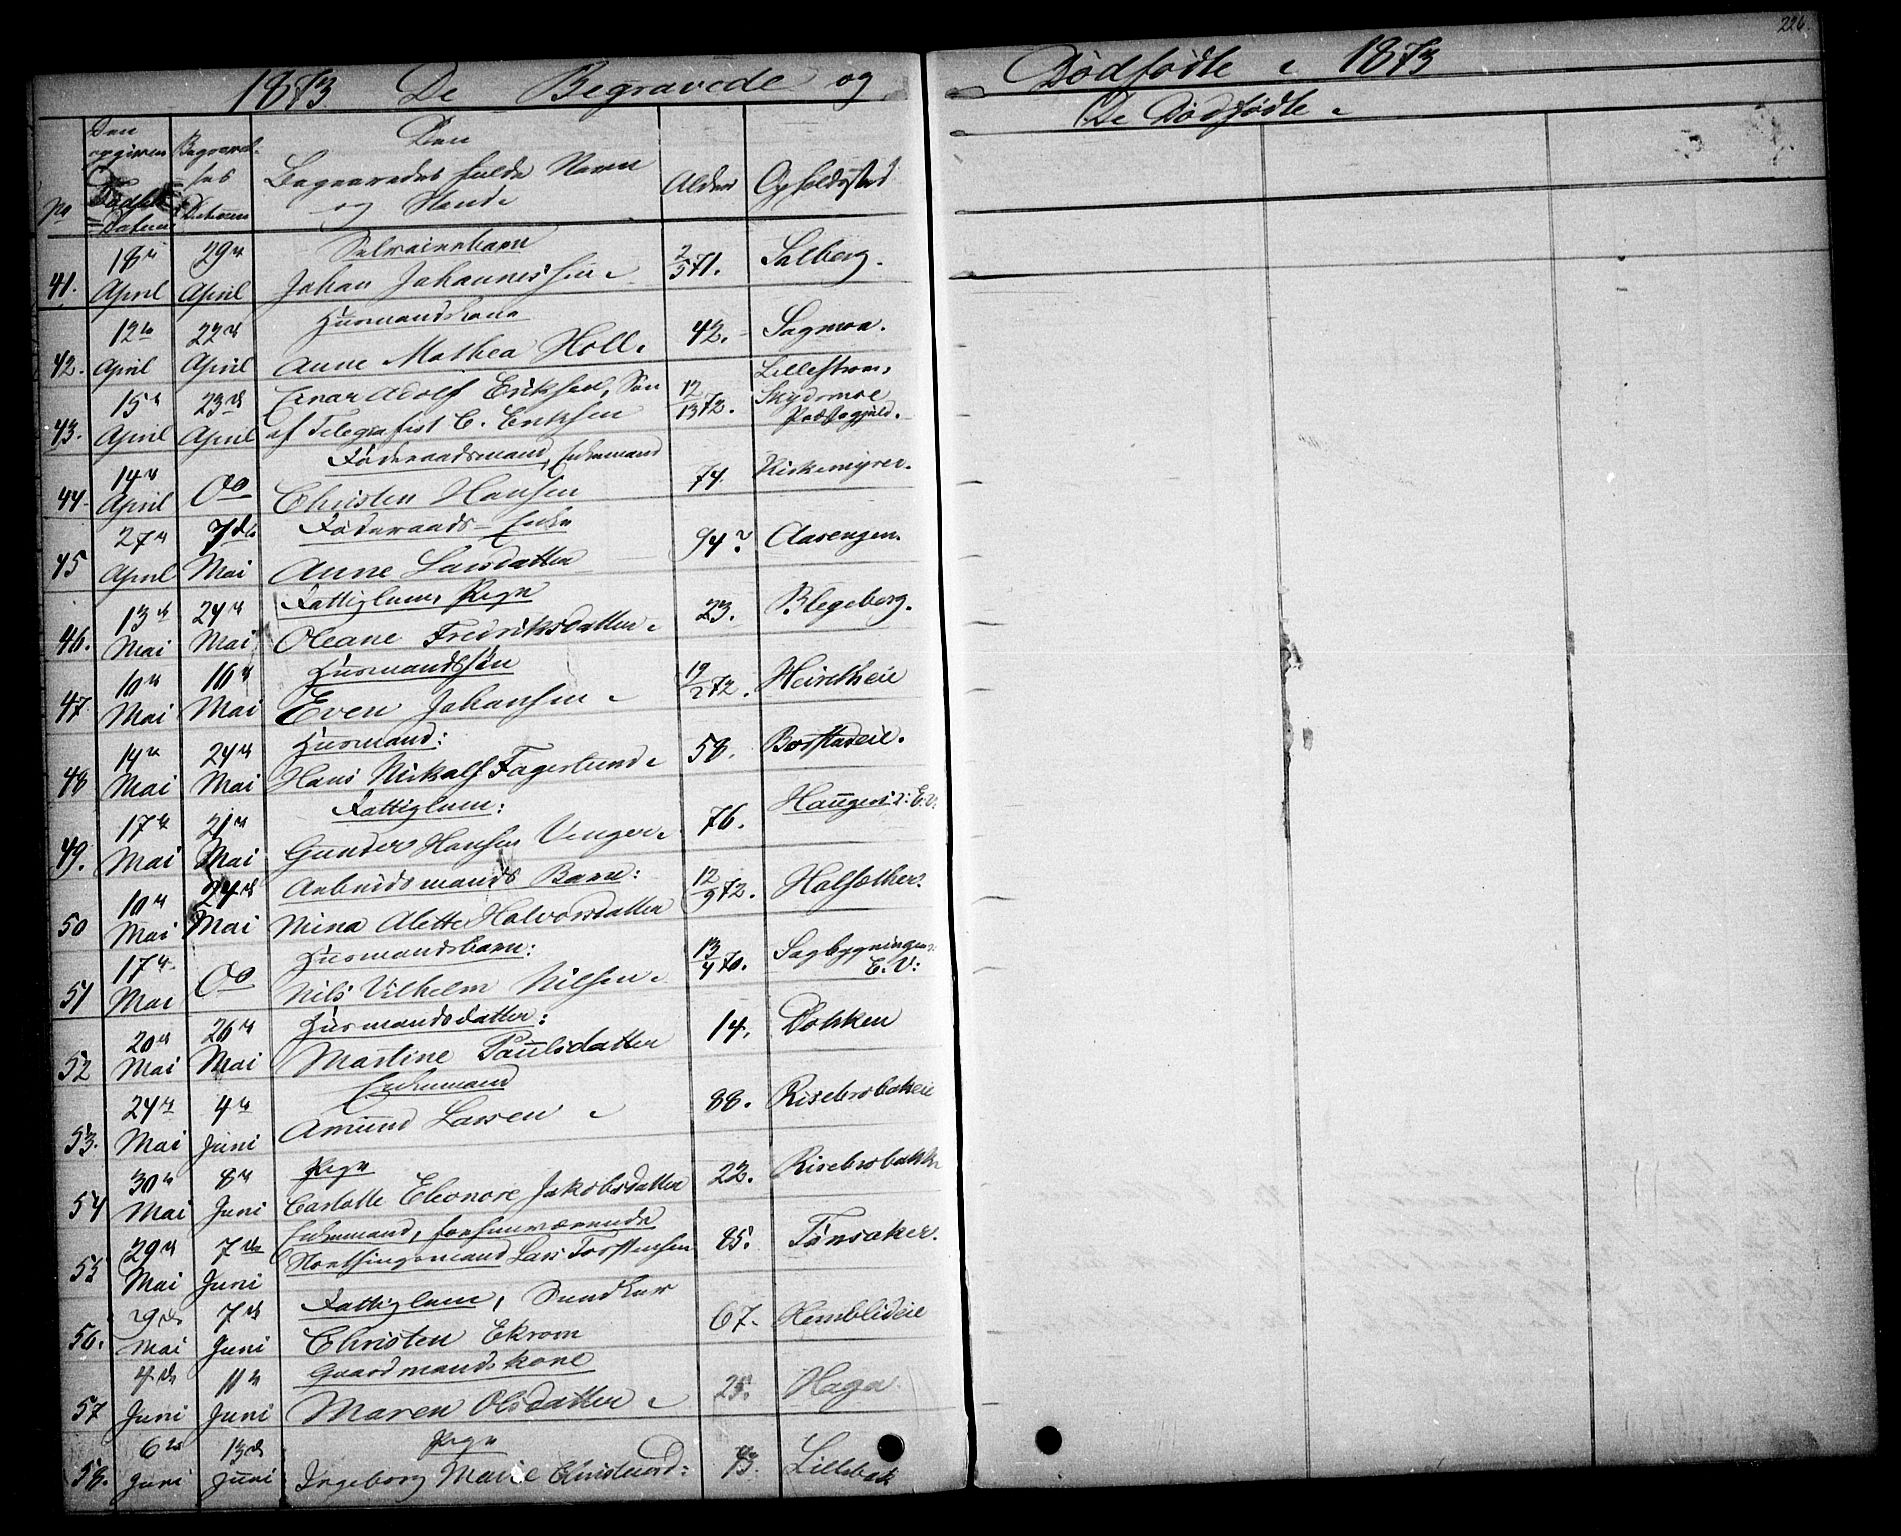 226.
1873 De Begravede og Dødfødte 1873
De Dødfødte
No
Den opgivne Døds Datum
Begravelses Datoen
Den Begravedes fulde Navn og Stand
Alder
Opholdssted
41. 18de April 29de April
Johan Johannessen 2/5 71. Solberg.
42. 12te April 22de April Husmandskone
Anne Mathea Holl. 42. Sagmoa.
43. 15de April 23de April Einar Adolf Eriksen, Søn
af Telegrafist C. Eriksen 12/13 72. Lillestrøm, Skydsmoe Præstegjæld.
44. 14de April Do Føderaadsmand, Enkemand
Christen Hansen 74. Kirkemyrer.
45 27de April 7de Mai Føderaads-Enke
Anne Larsdatter 94? Aasengen.
46. 13de Mai 24de Mai Fattiglem, Pige
Oleane Fredriksdatter 23. Blegeberg.
47. 10de Mai 16de Mai Husmandssøn
Even Johansen 19/2 72.
48 14de Mai 24de Mai Husmand:
Hans Fagerlund 58. Borstadeie.
49. 17de Mai 21de Mai Fattiglem:
Gunder Hansen Venger. 76. Haugen i E.V:
50 10de Mai 24de Mai Arbeidsmands Barn:
Mina Alette Halvorsdatter 12/9 72.
51 17de Mai Do Husmandsbarn:
Nils Vilhelm Nilsen 13/4 70. Sagbygningen E.V:
52 20de Mai 26de Mai Husmandsdatter:
Martine Paulsdatter 14. Dokken
53. 24de Mai 4de Juni Enkemand
Amund Larsen 88. Risebrobakeie
54 30de Mai 8de Juni Pige
Carlotte Eleonore Jakobsdatter 22. Risebrobakke
55 29de Mai 7de Juni Enkemand, forhenværende
Storthingsmand Lars Torstensen 85. Tønsaker.
56. 29de Mai 7de Juni Fattiglem,
Christen Ekrom 67. Hemblideie
57 4de Juni 11te Juni Gaardmandskone
Maren Olsdatter 25. Haga
58. 6te Juni 13de Juni Pige
Ingeborg Marie Christensd: 73. Lillebak